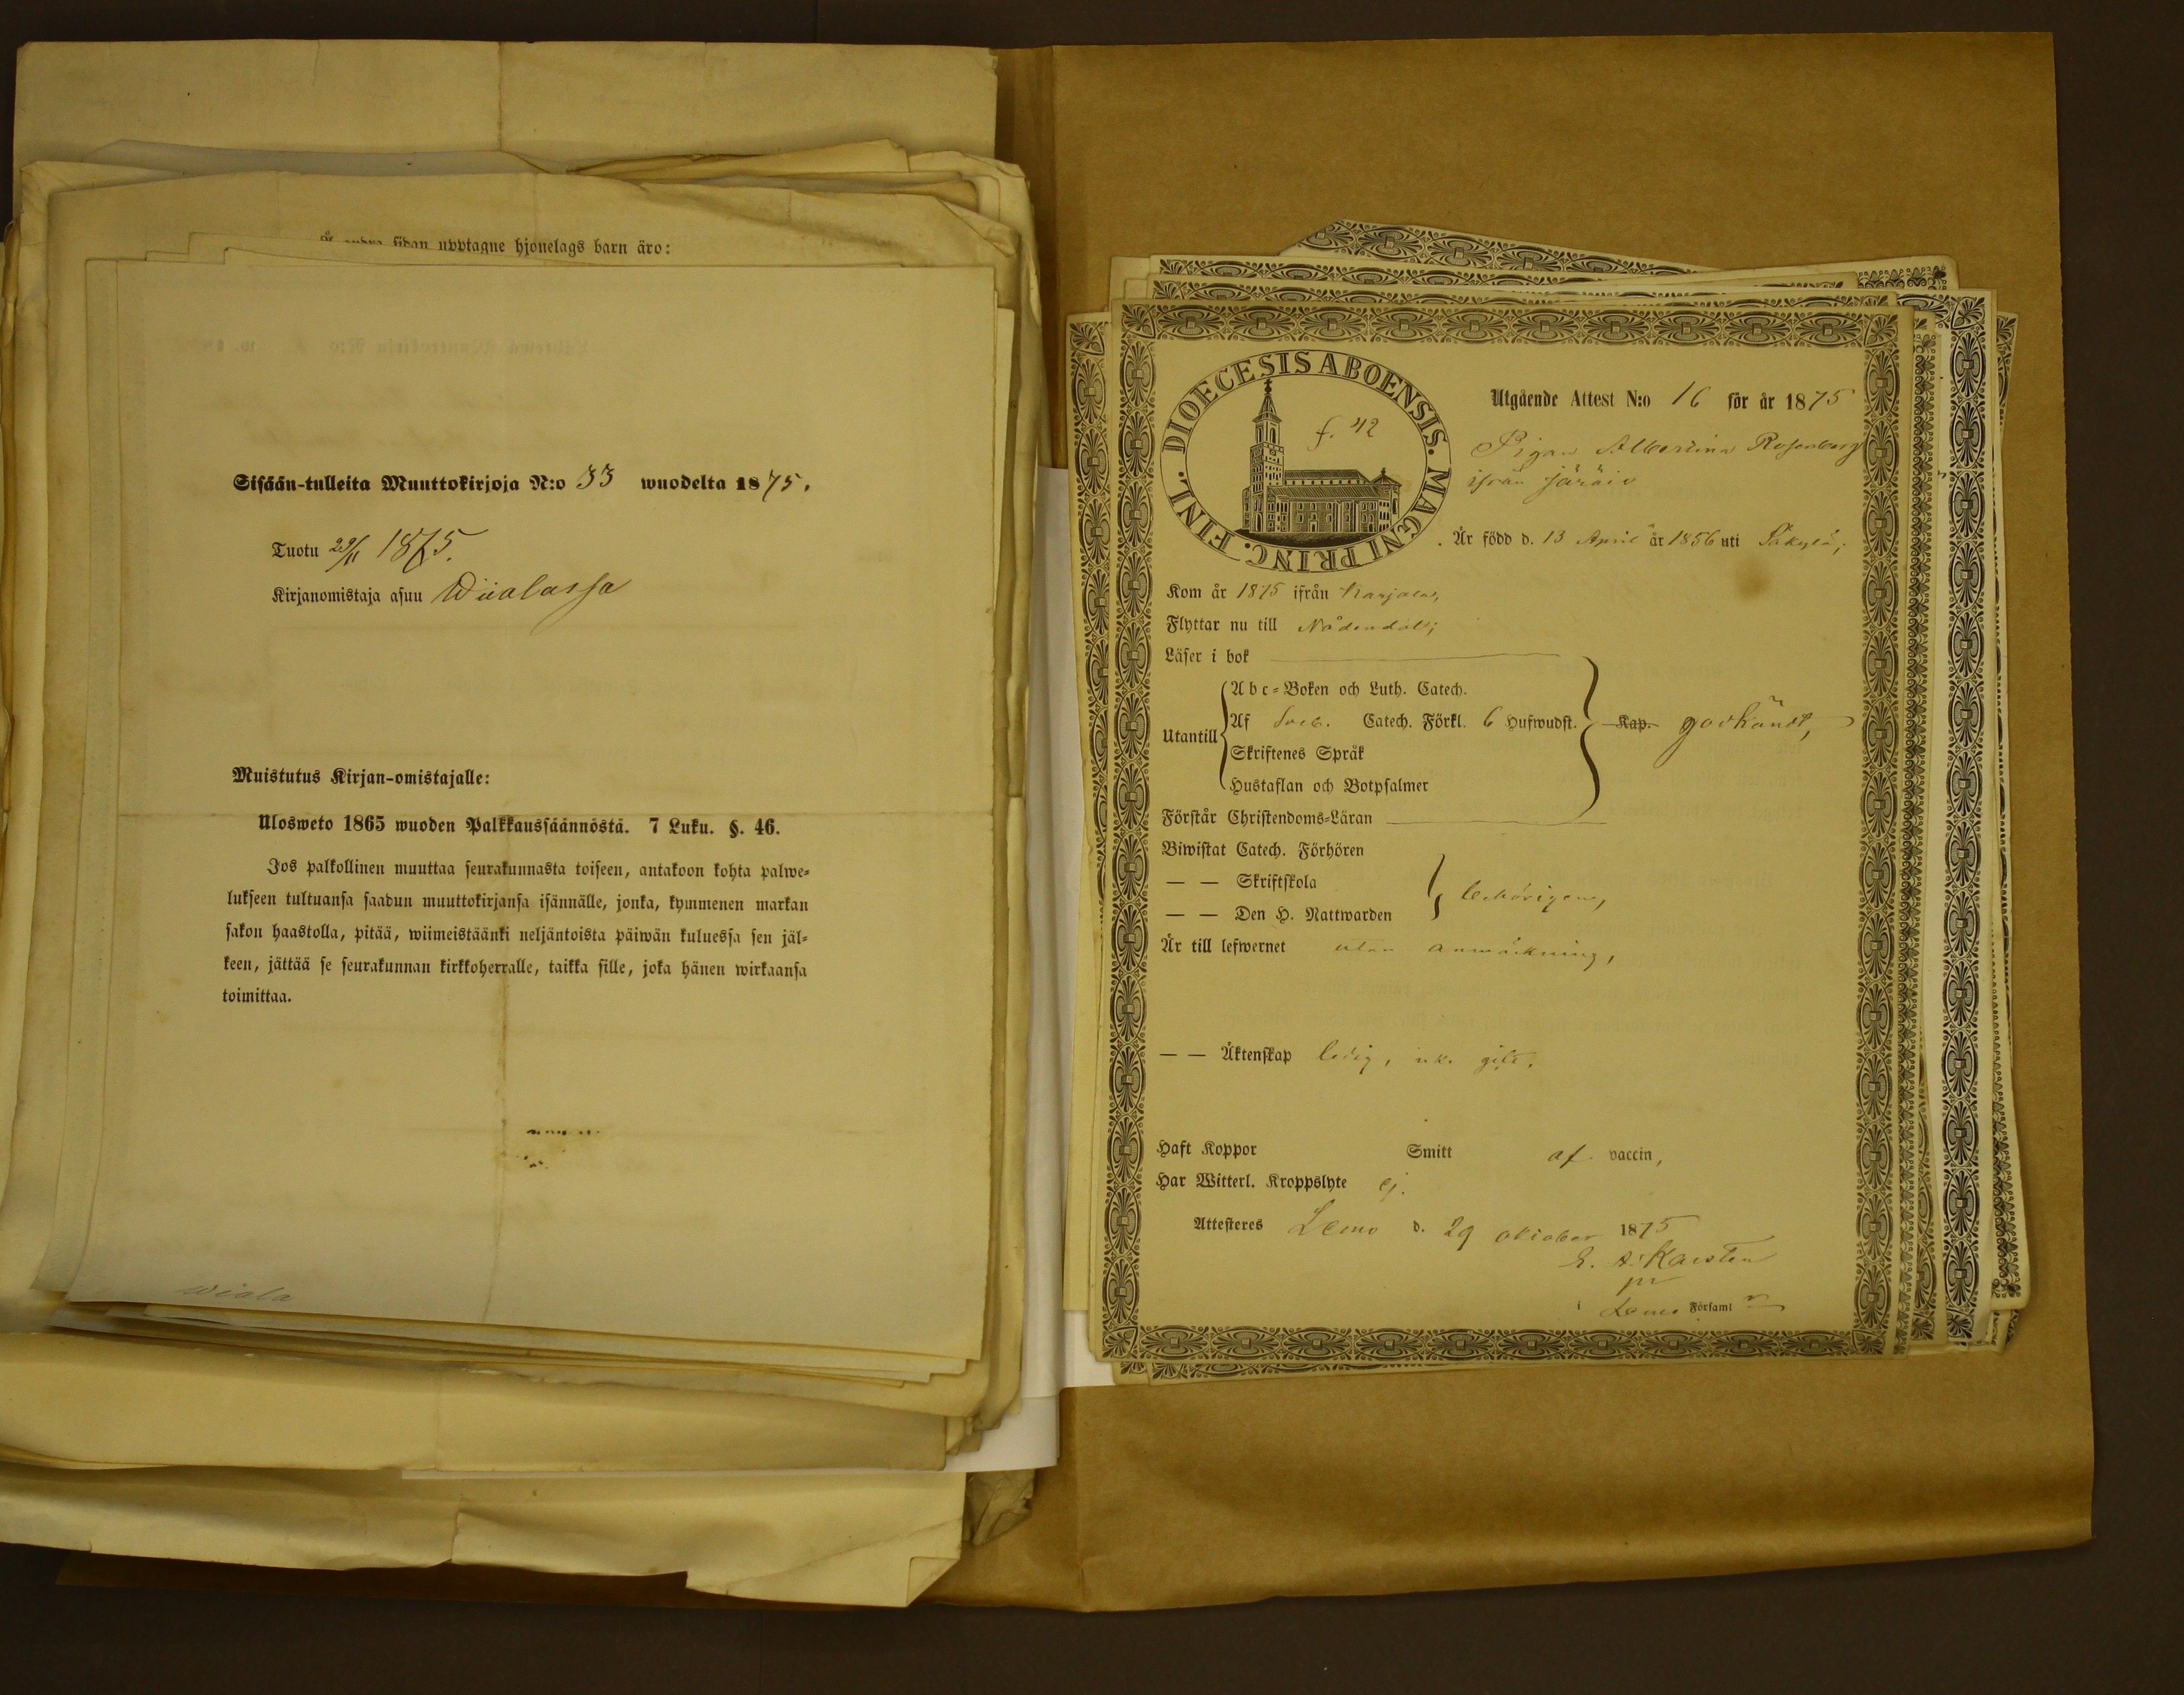 sidan upptagne hjonelags barn äro:
Sisään-tulleita Muuttokirjoja N:o 33 wuodelta 1875.
Tuotu 29/11 1875.
Kirjanomistaja asuu Wiialassa
Muistutus Kirjan-omistajalle:
Ulosweto 1865 wuoden Palkkaussäännöstä. 7 Luku. §. 46.
Jos palkollinen muuttaa seurakunnasta toiseen, antakoon kohta palwe-
lukseen tultuansa saadun muuttokirjansa isännälle, jonka, kymmenen markan
sakon haastolla, pitää, wiimeistäänki neljäntoista päiwän kuluessa sen jäl-
keen, jättää se seurakunnan kirkkoherralle, taikka sille, joka hänen wirkaansa
toimittaa.
Wiala
DIOECESIS ABOENSIS. MAGNI PRINC. FINL.
f. 42
Utgående Attest N:o 16 för år 1875
Pigan Albertina Rosenberg
ifrån Järäis
Är född d. 13 April år 1856 uti Säkylä;
Kom år 1875 ifrån Karjala,
Flyttar nu till Nådendal;
Läser i bok
Utantill
Abc-Boken och Luth. Catech.
Af Sveb. Catech. Förkl. 6 Hufwudst. Kap. godkändt,
Skriftenes Språk
Hustaflan och Botpsalmer
Förstår Christendoms-Läran
Biwistat Catech. Förhören
— — Skriftskola behörigen,
— — Den H. Nattwarden
Är till lefwernet utan anmärkning,
— — Äktenskap ledig, icke gift.
Haft Koppor Smitt af vaccin,
Har Witterl. Kroppslyte ej.
Attesteres Lemo d. 29 oktober 1875
E. A. Karsten
i Lemo Församl